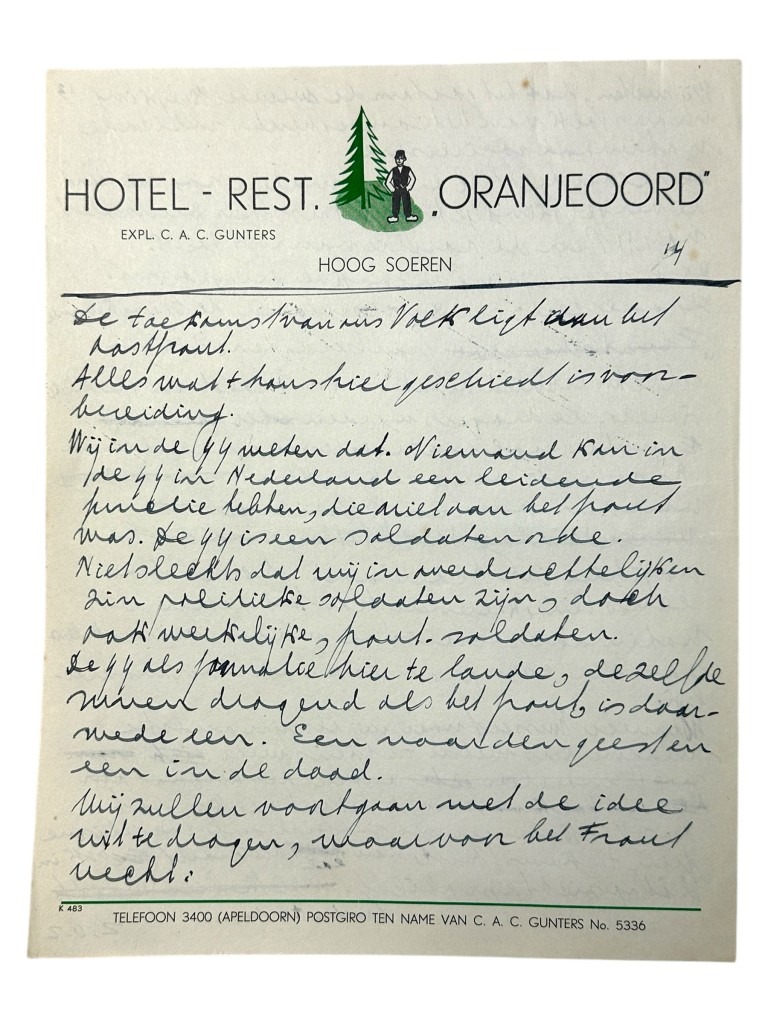 HOTEL - REST. „ORANJEOORD"
EXPL. C. A. C. GUNTERS
HOOG SOEREN
14
De toekomst van ons Volk ligt aan het
oostfront.
Alles wat thans hier geschiedt is voor-
bereiding.
Wij in de ϟϟ weten dat. Niemand kan in
de ϟϟ in Nederland een leidende
functie hebben, die niet aan het front
was. De ϟϟ is een soldatenorde.
Niet slechts dat wij in overdrachtelijken
zin politieke soldaten zijn, doch
ook werkelijke, front-soldaten.
De ϟϟ als formatie hier te lande, dezelfde
runen dragend als het front, is daar-
mede een. Een naar den geest en
een in de daad.
Wij zullen voortgaan met de idee
uit te dragen, waarvoor het Front
vecht:
K 483
TELEFOON 3400 (APELDOORN) POSTGIRO TEN NAME VAN C. A. C. GUNTERS No. 5336